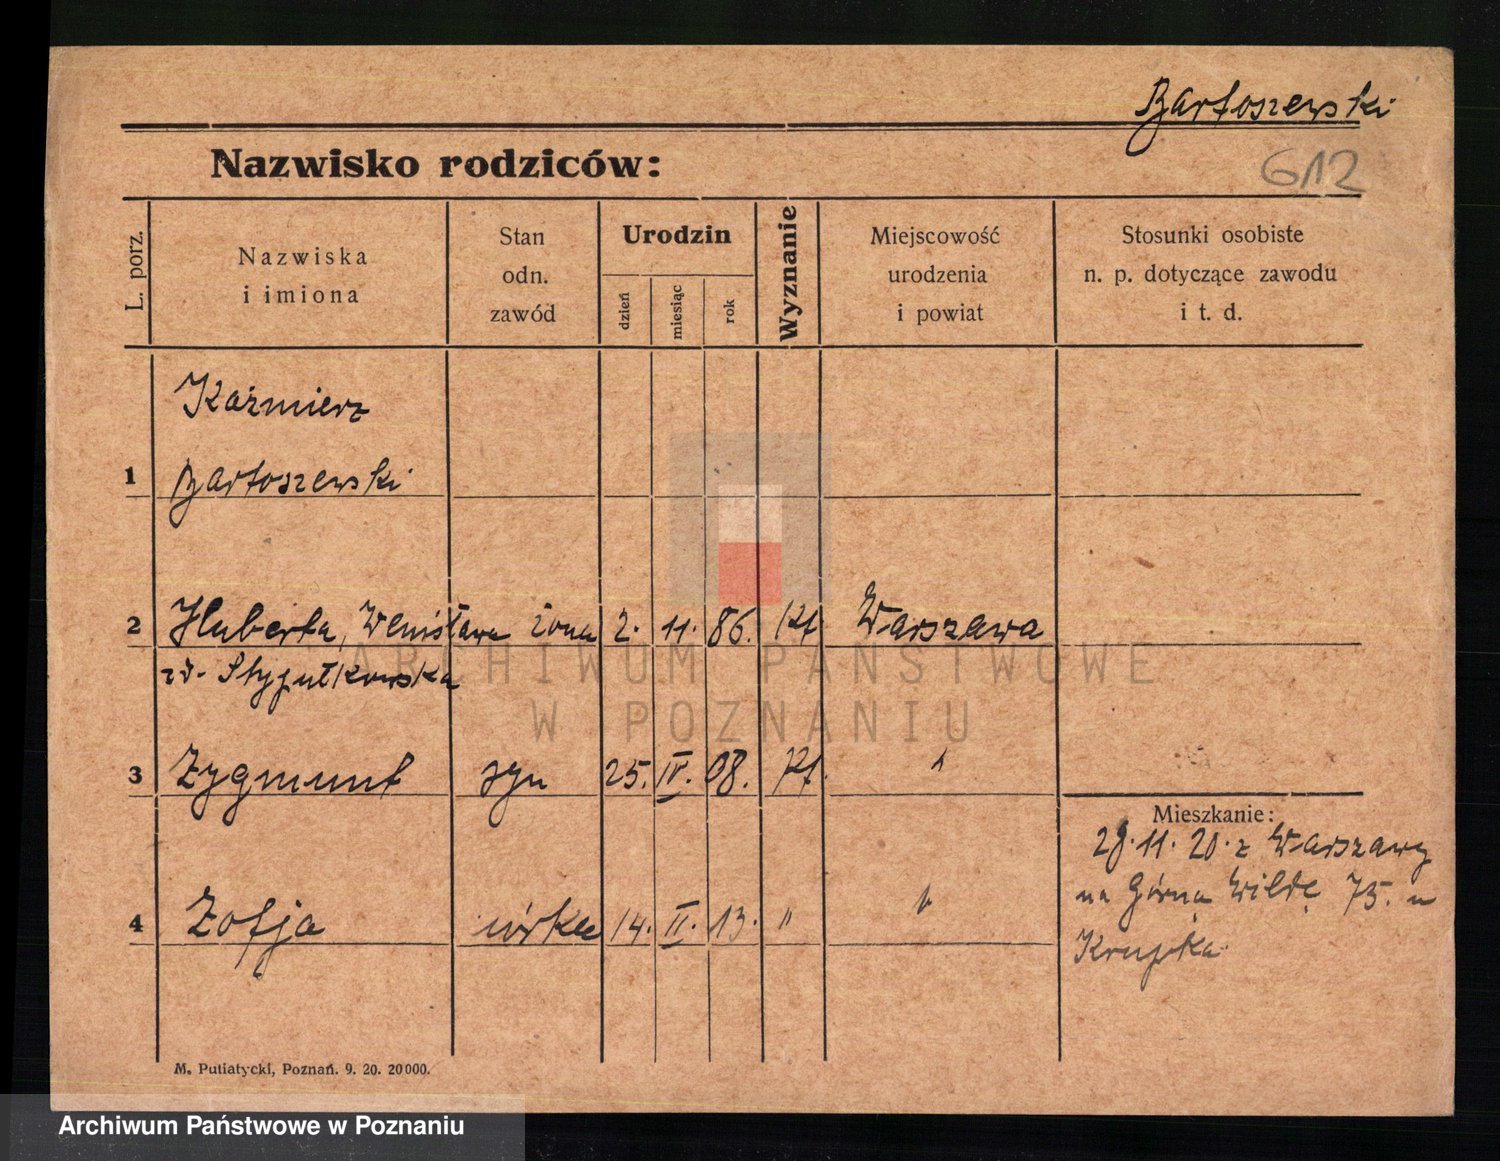 Bartoszewski
Nazwisko rodziców:
612
L. porz.
Nazwiska
i imiona
Stan
odn.
zawód
Urodzin
dzień
miesiąc
rok
Wyznanie
Miejscowość
urodzenia
i powiat
Stosunki osobiste
n. p. dotyczące zawodu
i t. d.
Kaźmierz
1 Bartoszewski
2 Huberta, Wenisława żona 2. 11. 86. Kt Warszawa
zd. Stygułkowska
ARCHIWUM PAŃSTWOWE
W POZNANIU
3 Zygmunt syn 25. IV. 08. Kt.
Mieszkanie:
29. 11. 20. z Warszawy
na Górną Wildę 75. u
4 Zofja córka 14. II. 13. "
Krupka
M. Putiatycki, Poznań. 9. 20. 20000.
Archiwum Państwowe w Poznaniu